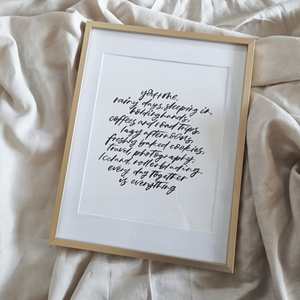 you & me,
rainy days, sleeping in,
holding hands,
coffees and road trips,
lazy afternoons,
freshly baked cookies,
travel, photography,
Iceland, rollerblading
every day together
is everything